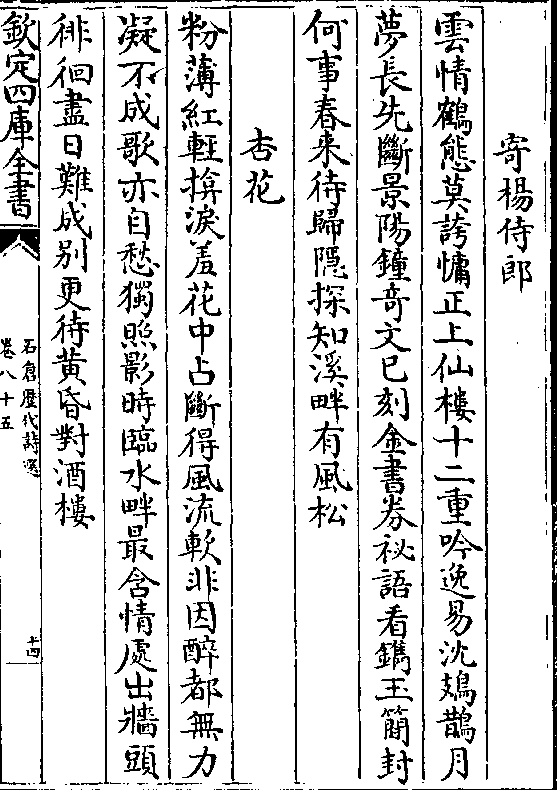 寄楊侍郎
雲情鶴態莫誇慵正上仙樓十二重吟逸易沈鳷鵲月
夢長先斷景陽鐘竒文已刻金書券祕語看鐫玉簡封
何事春来待歸隠探知溪畔有風松
杏花
粉薄紅輕揜淚羞花中占斷得風流軟非因醉都無力
凝不成歌亦自愁獨照影時臨水畔最含情處出牆頭
徘徊盡日難成別更待黄昏對酒樓
欽定四庫全書
石倉歷代詩選
卷八十五
十四